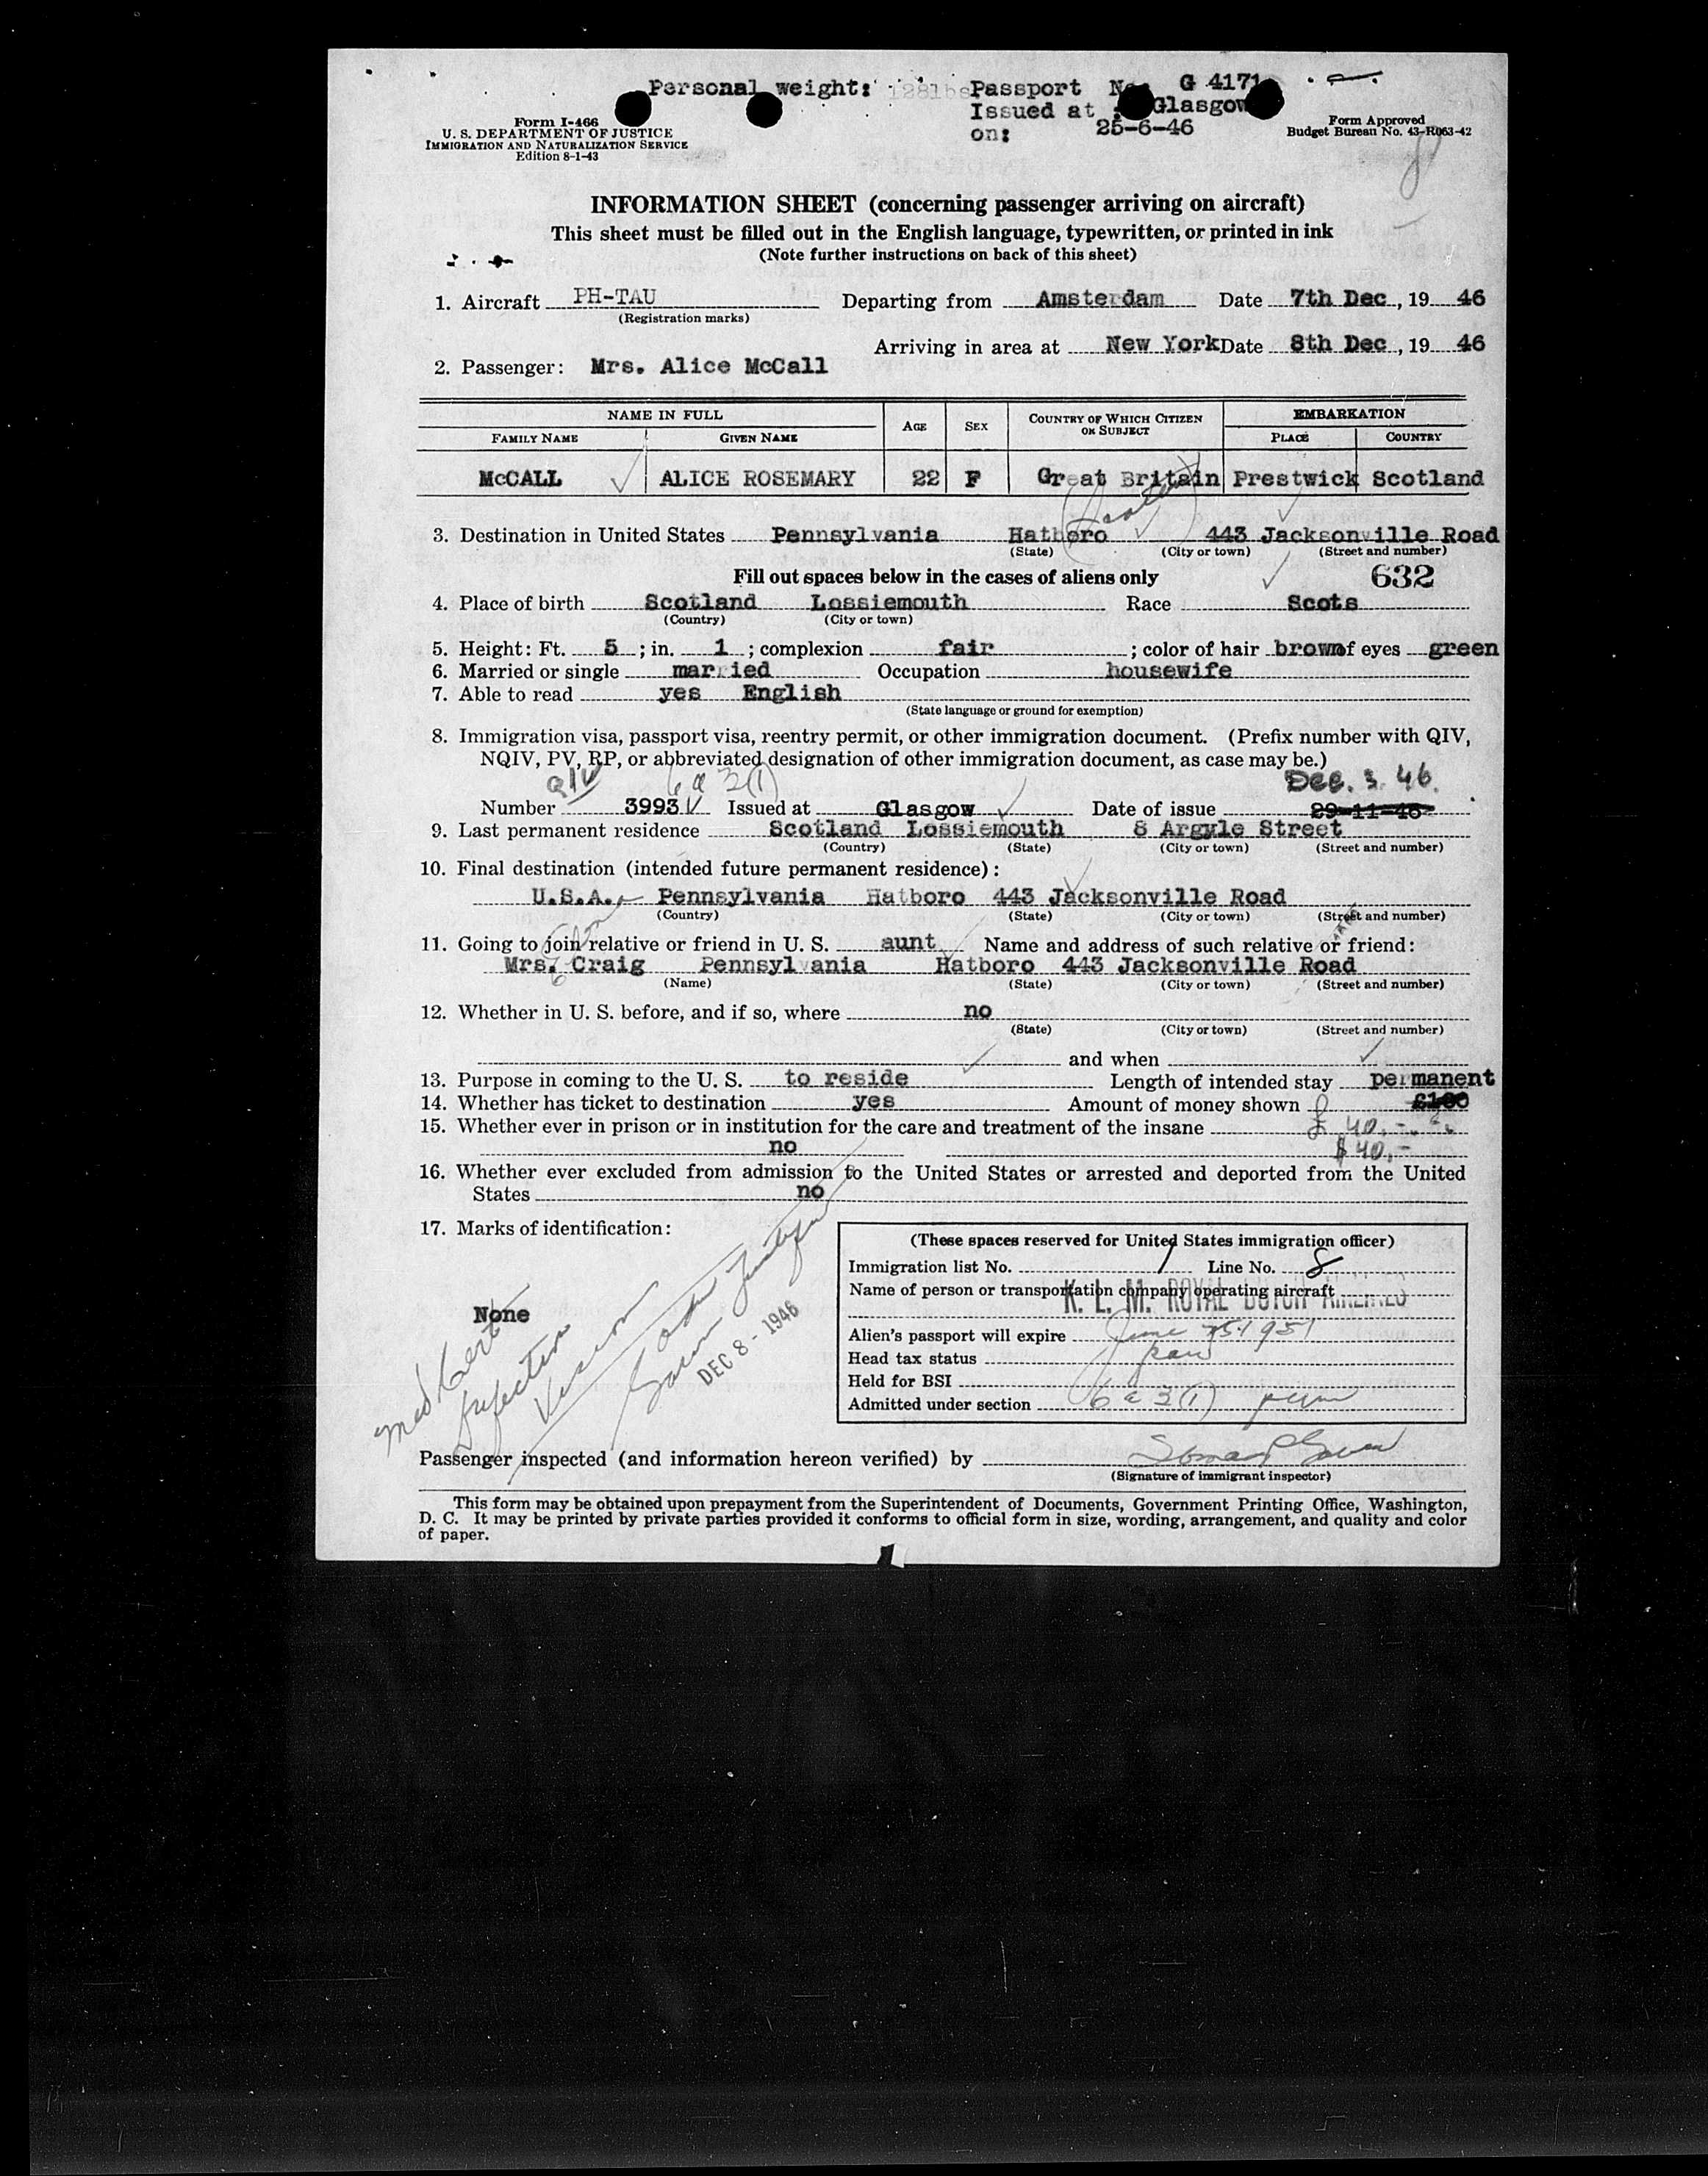 Personal weight: 128lbs Passport No. G 4171
Issued at : Glasgow
on: 25-6-46
Form I-466
U. S. DEPARTMENT OF JUSTICE
IMMIGRATION AND NATURALIZATION SERVICE
Edition 8-1-43
Form Approved
Budget Bureau No. 43-R063-42
INFORMATION SHEET (concerning passenger arriving on aircraft)
This sheet must be filled out in the English language, typewritten, or printed in ink
(Note further instructions on back of this sheet)
1. Aircraft PH-TAU Departing from Amsterdam Date 7th Dec, 19 46
(Registration marks)
Arriving in area at New York Date 8th Dec, 19 46
2. Passenger: Mrs. Alice McCall
NAME IN FULL AGE SEX COUNTRY OF WHICH CITIZEN OR SUBJECT EMBARKATION
FAMILY NAME GIVEN NAME PLACE COUNTRY
McCALL ALICE ROSEMARY 22 F Great Britain Prestwick Scotland
(Scotland)
3. Destination in United States Pennsylvania Hatboro 443 Jacksonville Road
(State) (City or town) (Street and number)
Fill out spaces below in the cases of aliens only 632
4. Place of birth Scotland Lossiemouth Race Scots
(Country) (City or town)
5. Height: Ft. 5 ; in. 1 ; complexion fair ; color of hair brown of eyes green
6. Married or single married Occupation housewife
7. Able to read yes English
(State language or ground for exemption)
8. Immigration visa, passport visa, reentry permit, or other immigration document. (Prefix number with QIV,
NQIV, PV, RP, or abbreviated designation of other immigration document, as case may be.)
QIV 6 a 3(1) Dec. 3. 46.
Number 3993 Issued at Glasgow Date of issue 29-11-46
9. Last permanent residence Scotland Lossiemouth 8 Argyle Street
(Country) (State) (City or town) (Street and number)
10. Final destination (intended future permanent residence):
U.S.A. Pennsylvania Hatboro 443 Jacksonville Road
(Country) (State) (City or town) (Street and number)
11. Going to join relative or friend in U. S. aunt Name and address of such relative or friend:
Mrs. Craig Pennsylvania Hatboro 443 Jacksonville Road
(Name) (State) (City or town) (Street and number)
12. Whether in U. S. before, and if so, where no
(State) (City or town) (Street and number)
and when
13. Purpose in coming to the U. S. to reside Length of intended stay permanent
14. Whether has ticket to destination yes Amount of money shown £100
15. Whether ever in prison or in institution for the care and treatment of the insane £ 40.-
no $ 40.-
16. Whether ever excluded from admission to the United States or arrested and deported from the United
States no
17. Marks of identification:
None
Med Cert
DEC 8 - 1946
(These spaces reserved for United States immigration officer)
Immigration list No. 1 Line No. 8
Name of person or transportation company operating aircraft
K. L. M. ROYAL DUTCH AIRLINES
Alien's passport will expire June 25 1951
Head tax status
Held for BSI
Admitted under section 6 a 3(1) perm
Passenger inspected (and information hereon verified) by
(Signature of immigrant inspector)
This form may be obtained upon prepayment from the Superintendent of Documents, Government Printing Office, Washington,
D. C. It may be printed by private parties provided it conforms to official form in size, wording, arrangement, and quality and color
of paper.